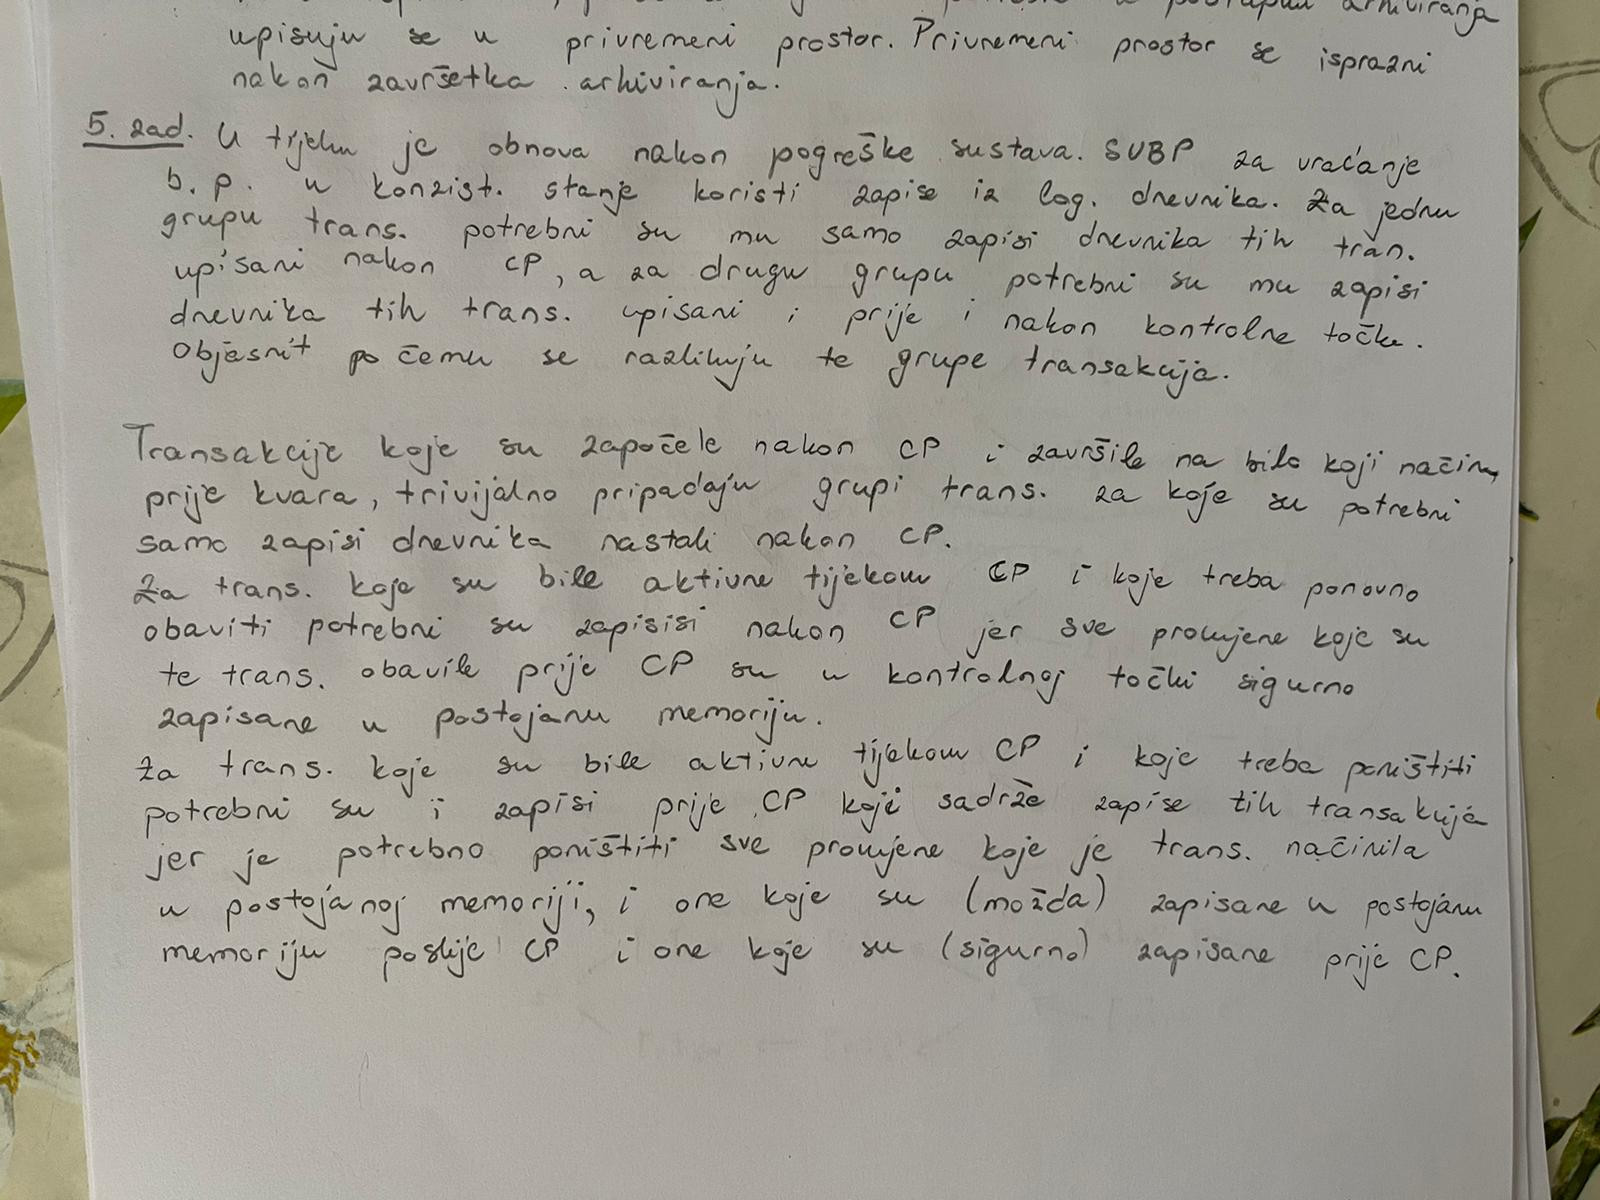 arhiviranja
upisuju se u privremeni prostor. Privremeni prostor se isprazni
nakon završetka arhiviranja.
5. zad. U tijeku je obnova nakon pogreške sustava. SUBP za vraćanje
b. p. u konzist. stanje koristi zapise iz log. dnevnika. Za jednu
grupu trans. potrebni su mu samo zapisi dnevnika tih tran.
upisani nakon CP, a za drugu grupu potrebni su mu zapisi
dnevnika tih trans. upisani i prije i nakon kontrolne točke.
Objasnit po čemu se razlikuju te grupe transakcija.
Transakcije koje su započele nakon CP i završile na bilo koji način,
prije kvara, trivijalno pripadaju grupi trans. za koje su potrebni
samo zapisi dnevnika nastali nakon CP.
Za trans. koje su bile aktivne tijekom CP i koje treba ponovno
obaviti potrebni su zapisisi nakon CP jer sve promjene koje su
te trans. obavile prije CP su u kontrolnoj točki sigurno
zapisane u postojanu memoriju.
Za trans. koje su bile aktivne tijekom CP i koje treba poništiti
potrebni su i zapisi prije CP koji sadrže zapise tih transakcija
jer je potrebno poništiti sve promjene koje je trans. načinila
u postojanoj memoriji, i one koje su (možda) zapisane u postojanu
memoriju poslije CP i one koje su (sigurno) zapisane prije CP.